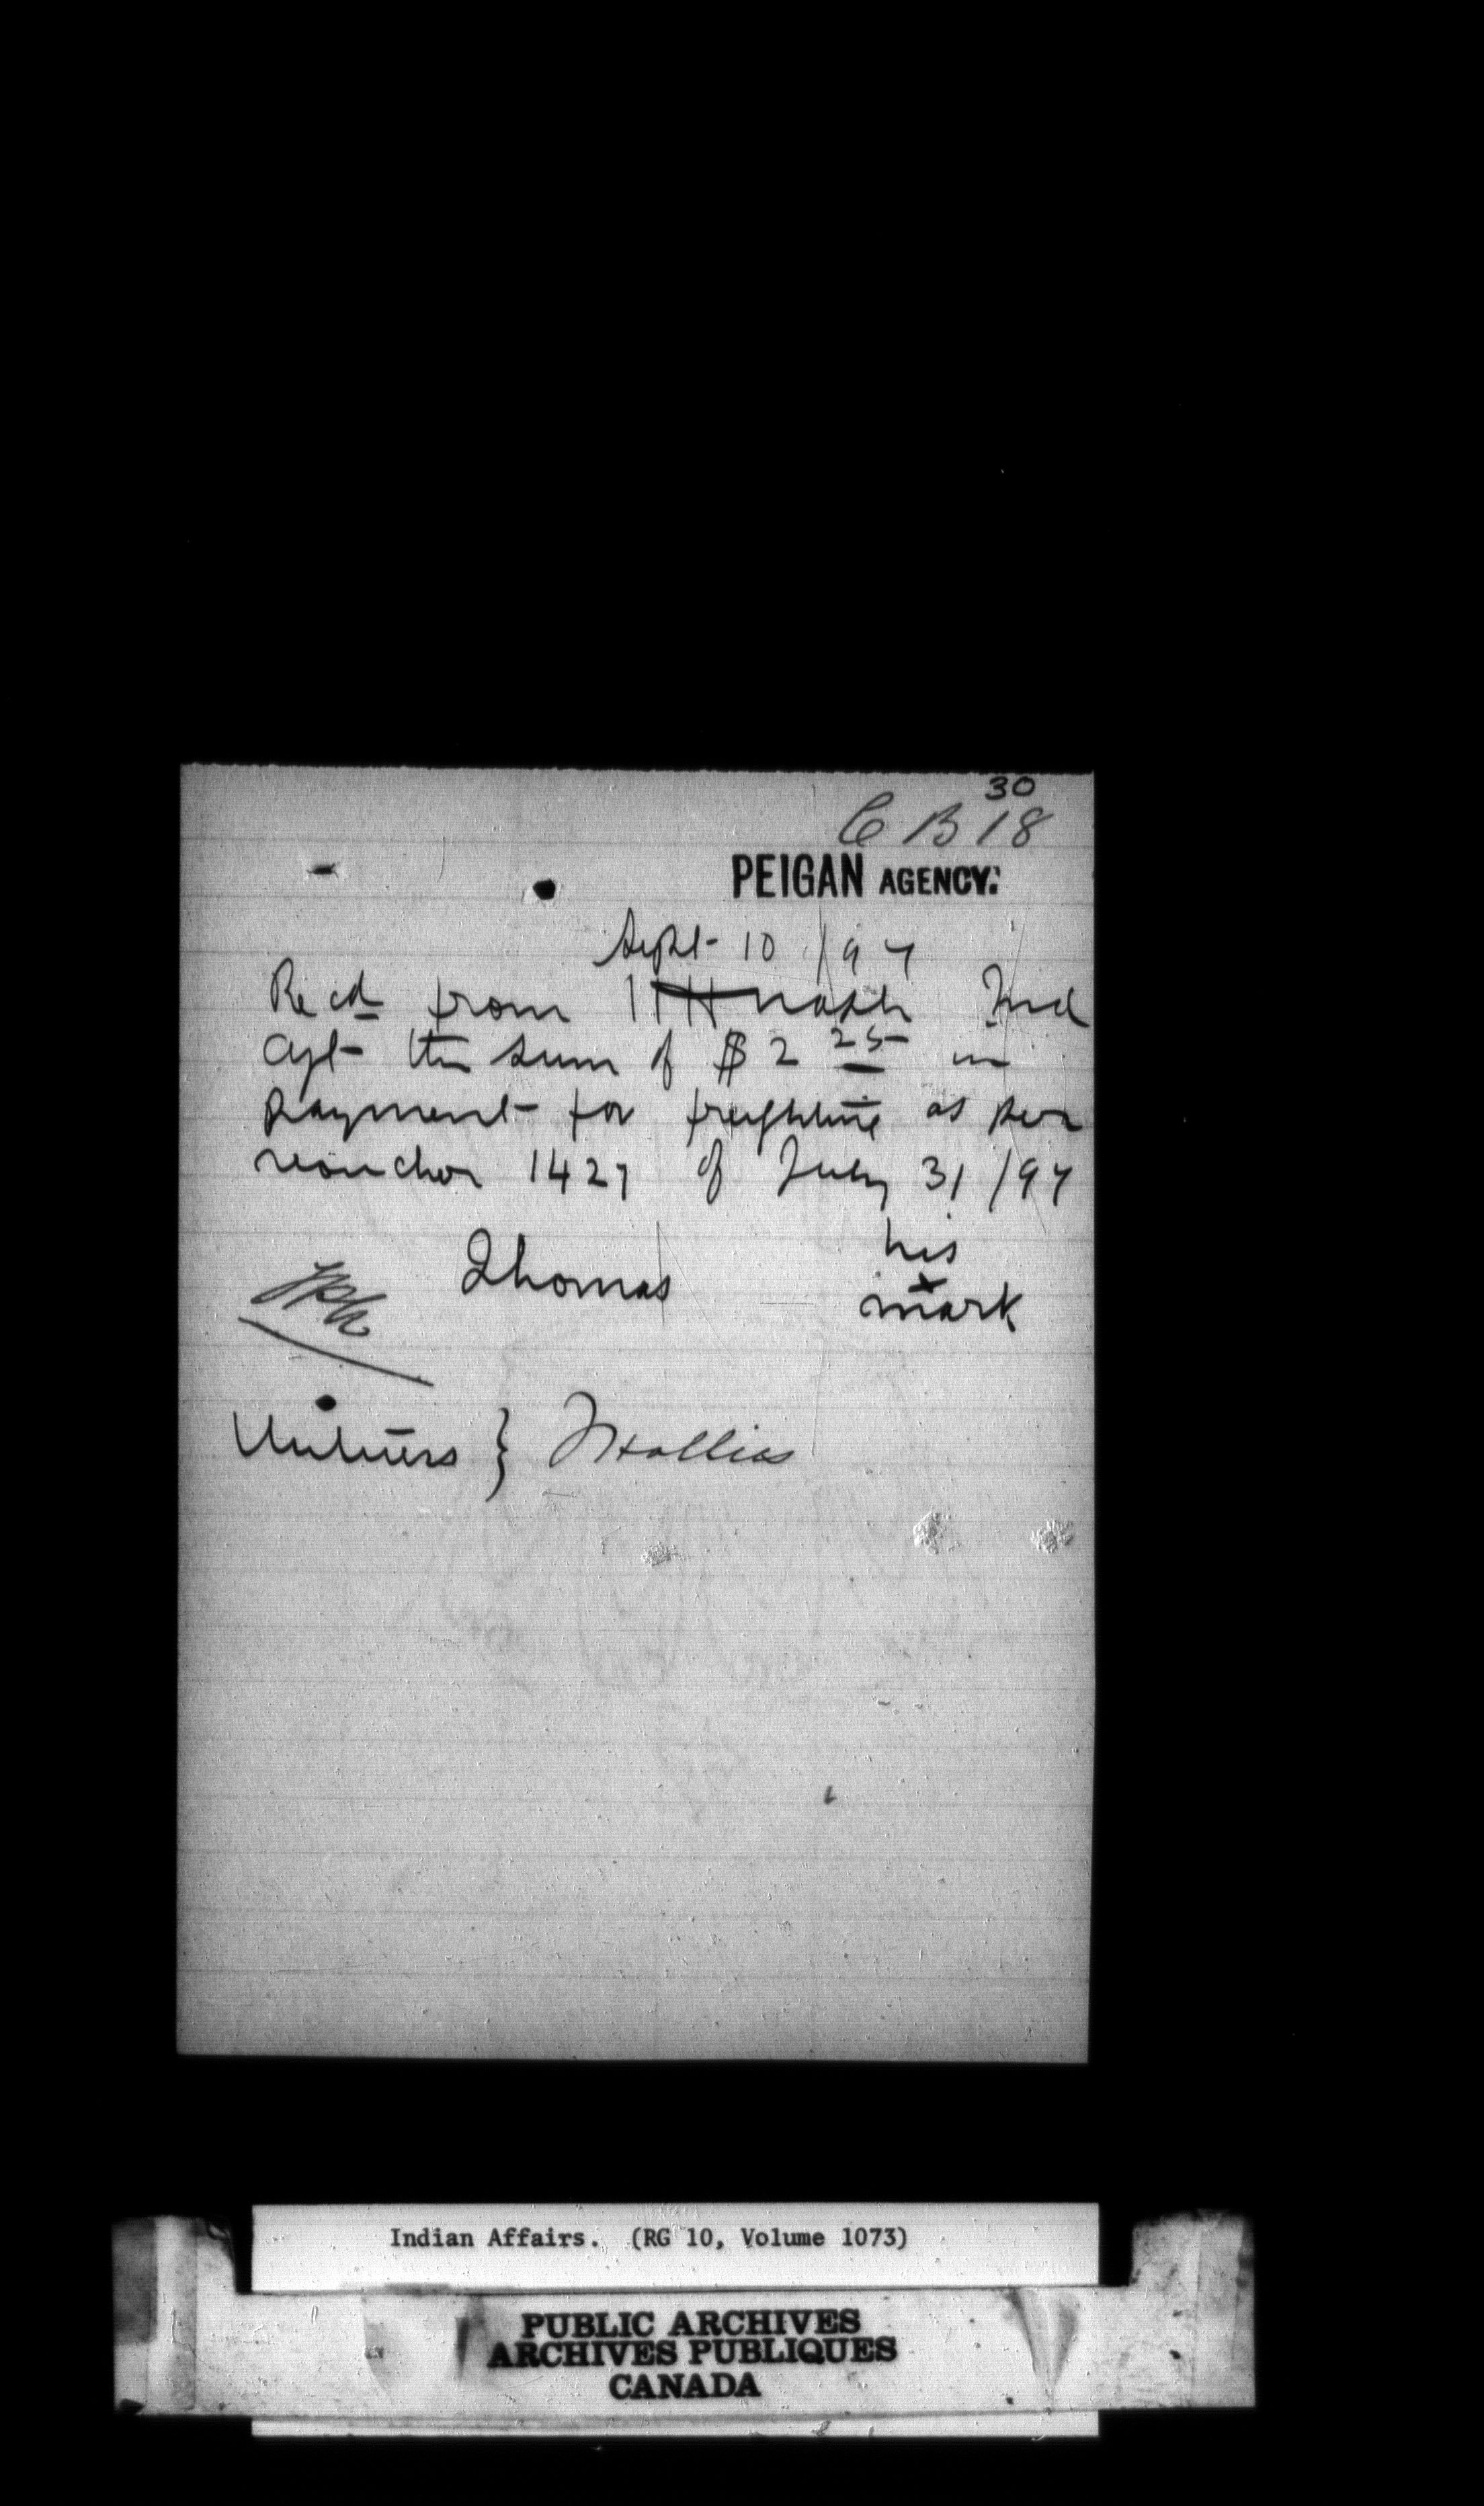 30
C B 18
PEIGAN AGENCY.
Sept 10 /97
Recd from H H Nash Ind
Agt the sum of $2 25 in
payment for freighting as per
voucher 1427 of July 31/97
his
Thomas x
mark
Witness } Hollies
Indian Affairs. (RG 10, Volume 1073)
PUBLIC ARCHIVES
ARCHIVES PUBLIQUES
CANADA